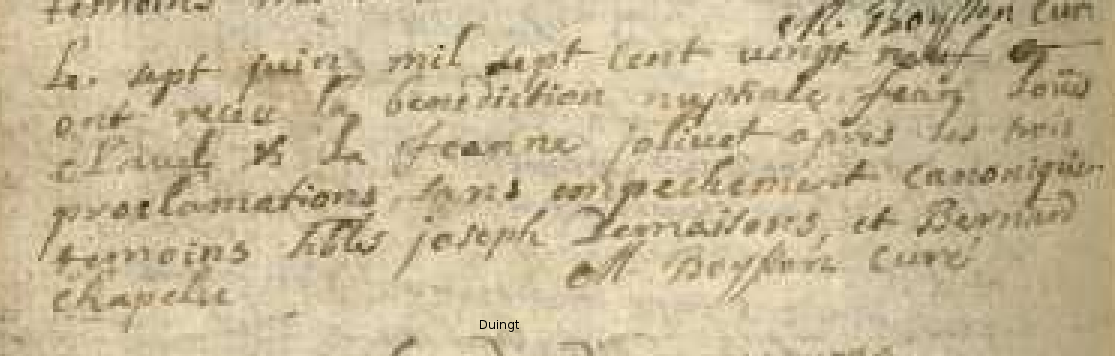 temoins
M. Boysson Cur
Le sept juin mil sept cent vingt neuf
ont receu la benediction nuptiale Jean Loüis
& la Jeanne joliuet apres les trois
proclamations sans empechement canonique
temoins joseph Demaisons, et Bernard
chapelu
M Boysson Curé
Duingt